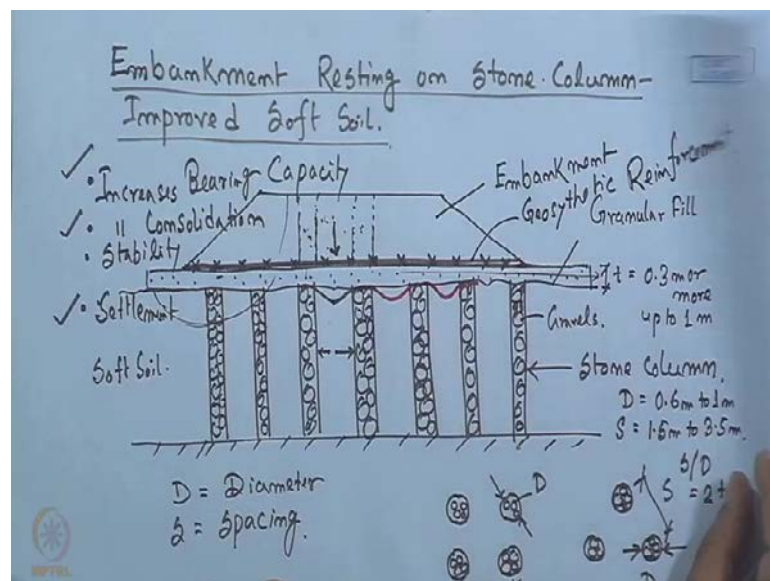 Embankment Resting on Stone Column-
Improved Soft Soil.
• Increases Bearing Capacity
• 11 Consolidation
• Stability
• Settlement
Soft Soil.
Embankment
Geosythetic Reinforcement
Granular Fill
t = 0.3m or
more
up to 1m
Gravels.
Stone Column.
D = 0.6m to 1m
S = 1.5m to 3.5m.
S/D
= 2 t
D = Diameter
S = Spacing.
D
S
D
NPTEL